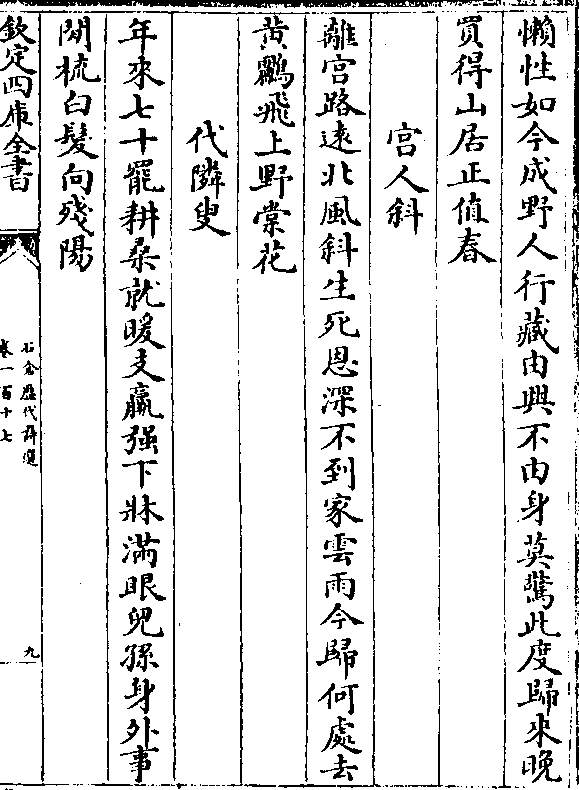 懶性如今成野人行藏由興不由身莫驚此度歸來晚
買得山居正值春
宫人斜
離宫路逺北風斜生死恩深不到家雲雨今歸何處去
黄鸝飛上野棠花
代隣叟
年來七十罷耕桑就暖支羸强下牀滿眼兒孫身外事
閒梳白髮向殘陽
欽定四庫全書
石倉歴代詩選
卷一百十七
九